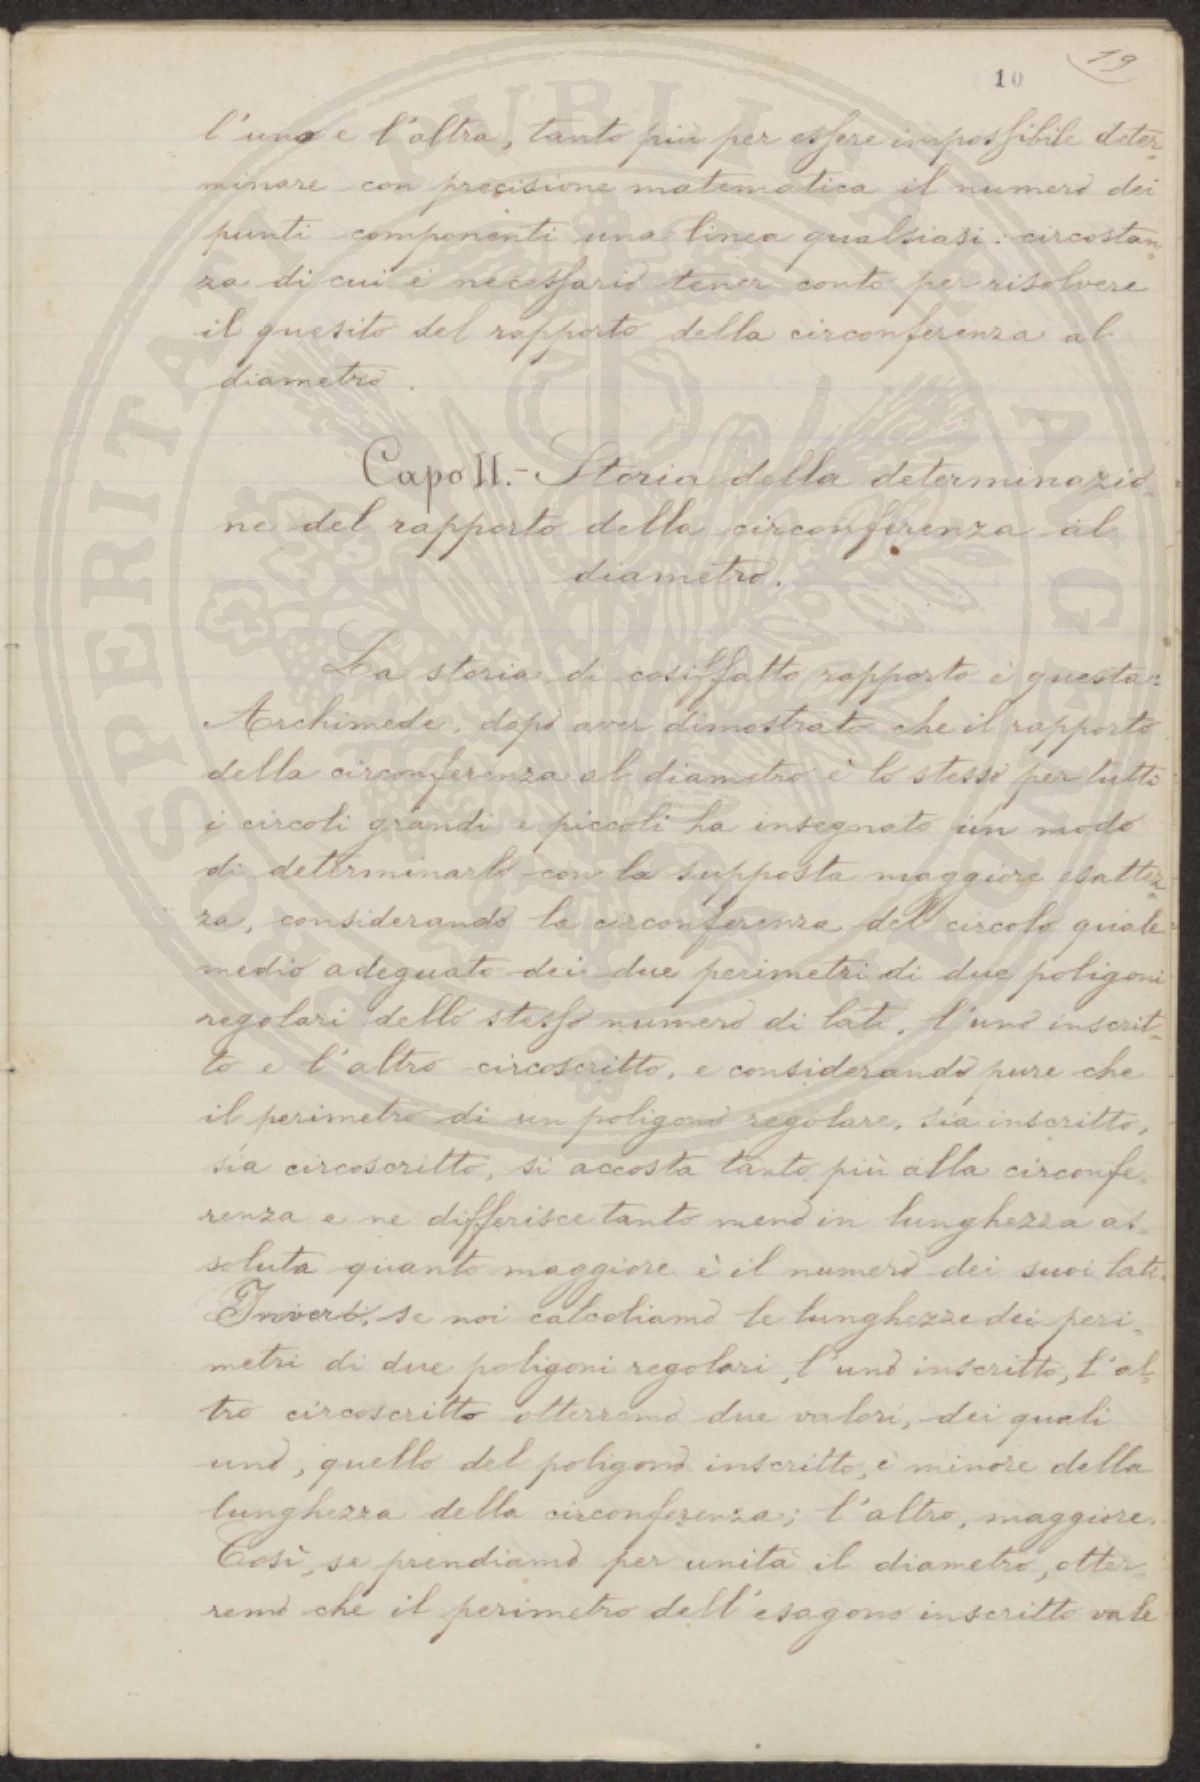 19
10
l'una e l'altra, tanto più per essere impossibile deter-
minare con precisione matematica il numero dei
punti componenti una linea qualsiasi: circostan-
za di cui è necessario tener conto per risolvere
il quesito del rapporto della circonferenza al
diametro.
Capo II. - Storia della determinazio-
ne del rapporto della circonferenza al
diametro.
La storia di cosiffatto rapporto è questa:
Archimede, dopo aver dimostrato che il rapporto
della circonferenza al diametro è lo stesso per tutti
i circoli grandi e piccoli ha insegnato un modo
di determinarlo con la supposta maggiore esattez-
za, considerando la circonferenza del circolo quale
medio adeguato dei due perimetri di due poligoni
regolari dello stesso numero di lati, l'uno inscrit-
to e l'altro circoscritto, e considerando pure che
il perimetro di un poligono regolare, sia inscritto,
sia circoscritto, si accosta tanto più alla circonfe-
renza e ne differisce tanto meno in lunghezza as-
soluta quanto maggiore è il numero dei suoi lati.
Invero, se noi calcoliamo le lunghezze dei peri-
metri di due poligoni regolari, l'uno inscritto, l'al-
tro circoscritto otterremo due valori, dei quali
uno, quello del poligono inscritto, è minore della
lunghezza della circonferenza; l'altro, maggiore.
Così, se prendiamo per unità il diametro, otter-
remo che il perimetro dell'esagono inscritto vale
PROSPERITATI PUBLICAE AUGENDAE